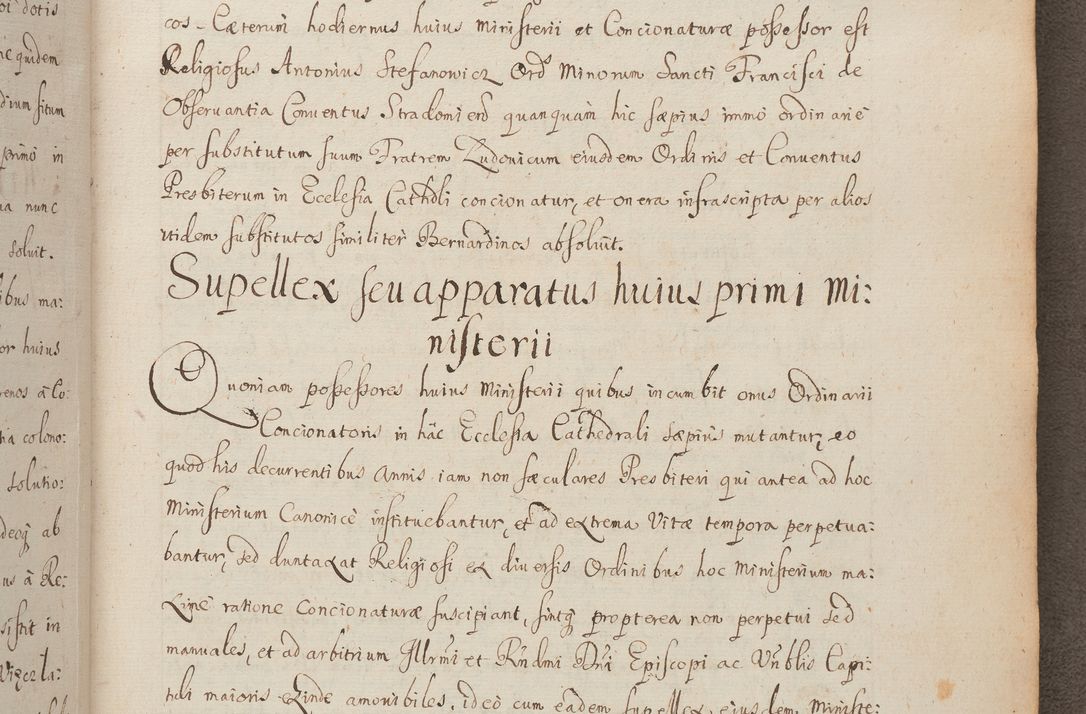 oi dotis
ne quidem
dium situm
primo in
na nunc
soluit.
ibus ma:
or huius
renos à Co:
tia colono:
solutio:
deoq ab
us à Re:
sistit in
Więcela:
cos. Cæterum hodiernus huius Ministerii et Concionaturæ possessor est
Religiosus Antonius Stefanowicz Ord Minorum Sancti Francisci de
Observantia Conventus Stradomien quanquam hic sæpius immo ordinarie
per substitutum suum Fratrem Ludovicum eiusdem Ordinis et Conventus
Presbiterum in Ecclesia Cathdli concionatur, et onera infrascripta per alios
itidem substitutos similiter Bernardinos absoluit.
Supellex seu apparatus huius primi Mi:
nisterii
Quoniam possessores huius Ministerii quibus incumbit onus Ordinarii
Concionatoris in hac Ecclesia Cathedrali sæpius mutantur, eo
quod his decurrentibus annis iam non sæculares Presbiteri qui antea ad hoc
Ministerium Canonicè instituebantur, et ad extrema Vitæ tempora perpetua:
bantur, sed duntaxat Religiosi ex diversis Ordinibus hoc Ministerium ma:
ximè ratione Concionaturæ suscipiant, sintq propterea non perpetui sed
manuales, et ad arbitrium Illrmi et Rndmi Dni Episcopi ac Vnblis Capi:
tuli maioris exinde amovibiles, ideò cum eadem supellex eiusdem Ministe: